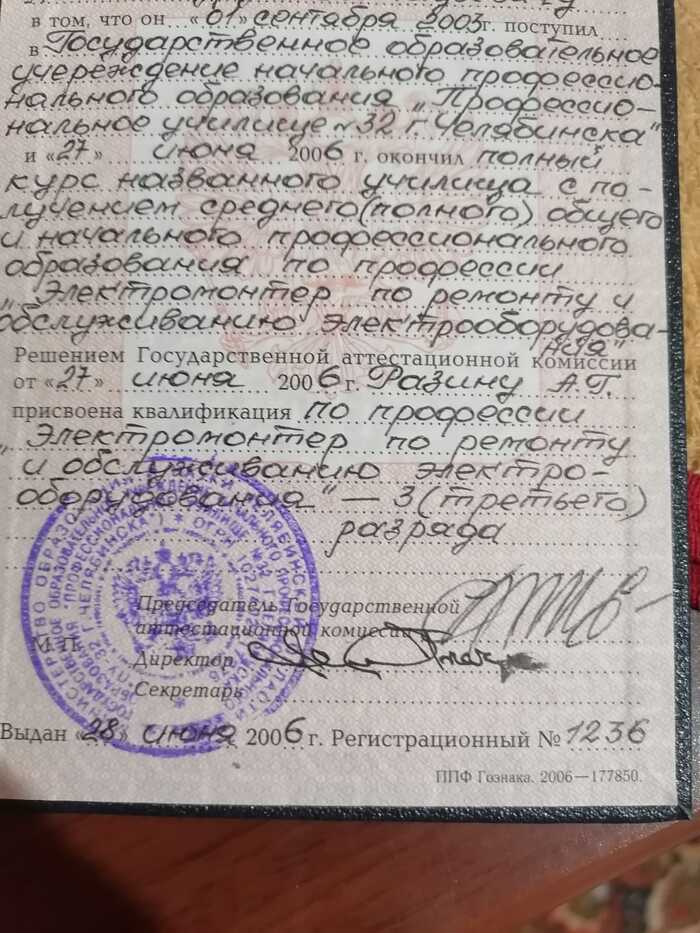 в том, что он «01» сентября 2003 г. поступил
в Государственное образовательное
учереждение начального профессио-
нального образования „Профессио-
нальное училище №32 г. Челябинска"
и «27» июня 2006 г. окончил полный
курс названного училища с по-
лучением среднего (полного) общего
и начального профессионального
образования по профессии
„Электромонтер по ремонту и
обслуживанию электрооборудова-
ния"
Решением Государственной аттестационной комиссии
от «27» июня 2006 г. Разину А.Г.
присвоена квалификация по профессии
„Электромонтер по ремонту
и обслуживанию электро-
оборудования" — 3 (третьего)
разряда
Председатель Государственной
аттестационной комиссии
М.П.
Директор
Секретарь
Выдан «28» июня 2006 г. Регистрационный № 1236
ППФ Гознака. 2006—177850.